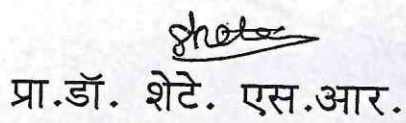 Shete
प्रा.डॉ. शेटे. एस.आर.